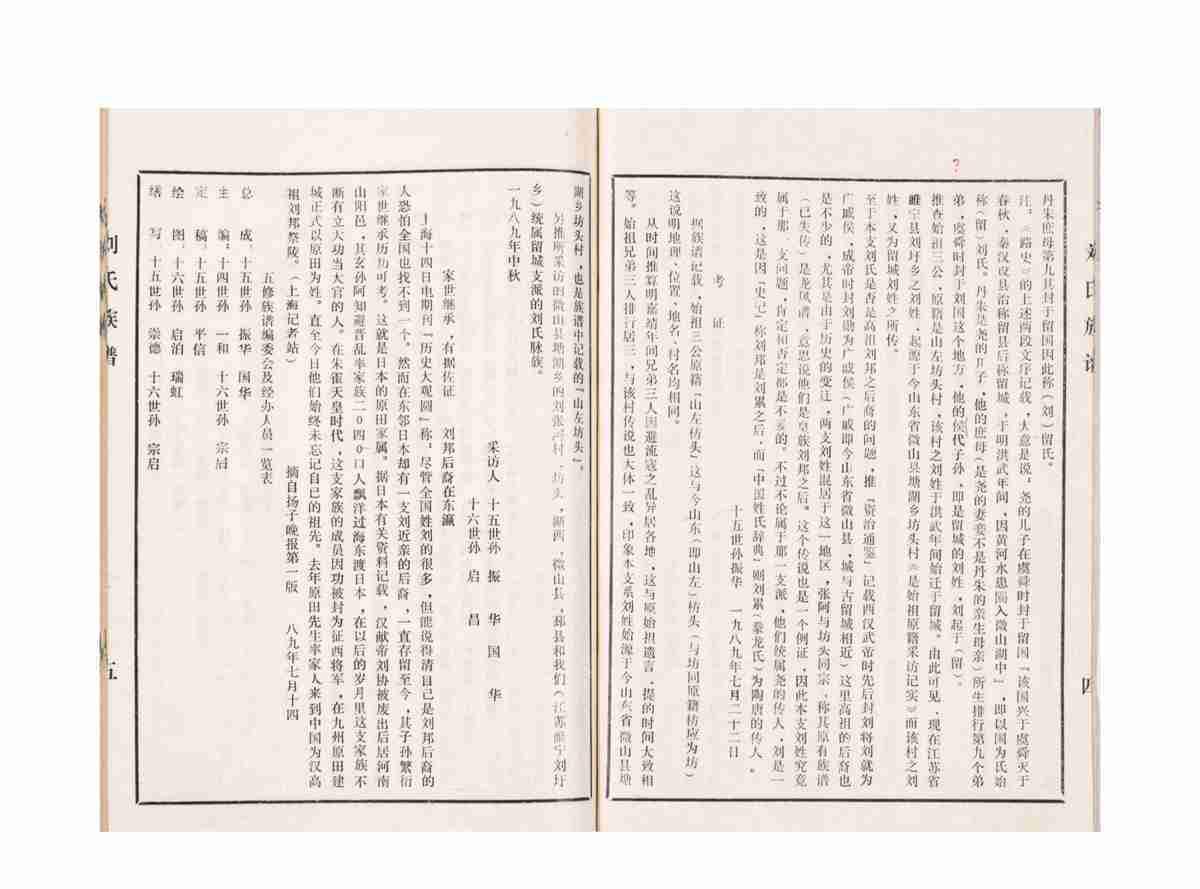 丹朱庶母第九其封于留国因此称(刘)留氏。
注，《路史》的上述两段文序记载，大意是说，尧的儿子在虞舜时封于留国『该国兴于虞舜灭于
春秋，秦汉改县治称留县后称留城，于明洪武年间，因黄河水患陷入微山湖中』，即以国为氏始
称(留)刘氏。丹朱是尧的月子，他的庶母(是尧的妻妾不是丹朱的亲生母亲)所生排行第九个弟
弟，虞舜时封于刘国这个地方，他的侯代子孙，即是留城的刘姓，刘起于(留)。
推查始祖三公，原籍是山左坊头村，该村之刘姓于洪武年间始迁于留城。由此可见，现在江苏省
睢宁县刘圩乡之刘姓，起源于今山东省微山县塘湖乡坊头村《是始祖原籍采访记实》而该村之刘
姓，又为留城刘姓之所传。
至于本支刘氏是否是高祖刘邦之后裔的问题，推『资治通鉴』记载西汉武帝时先后封刘将刘就为
广戚侯，成帝时封刘勋为广戚侯(广戚即今山东省微山县，城与古留城相近)这里高祖的后裔也
是不少的，尤其是由于历史的变迁，两支刘姓混居于这一地区，张阿与坊头同宗，称其原有族谱
(已失传)是龙凤谱，意思说他们是皇族刘邦之后。这个传说也是一个例证，因此本支刘姓究竟
属于那一支问题，肯定和否定都是不妥的。不过不论属于那一支派，他们统属尧的传人，刘是一
致的，这是因『史记』称刘邦是刘累之后，而『中国姓氏辞典』则刘累(豢龙氏)为陶唐的传人。
十五世孙振华 一九八九年七月二十二日
考 证
据族谱记载，始祖三公原籍『山左枋头』这与今山东(即山左)枋头(与坊同原籍枋应为坊)
这说明地理、位置、地名、村名均相同。
从时间推算明嘉靖年间兄弟三人因避流寇之乱异居各地，这与原始祖遗言，提的时间大致相
等。始祖兄弟三人排行居三，与该村传说也大体一致，印象本支系刘姓始源于今山东省微山县塘
刘氏族谱
四
湖乡坊头村，也是族谱中记载的『山左坊头』。
另推所采访的微山县塘湖乡的刘张河村，坊头，湖西，微山县，邳县和我们(江苏睢宁刘圩
乡)统属留城支派的刘氏脉族。
一九八九年中秋
采访人 十五世孙 振 华 国 华
十六世孙 启 昌
家世继承，有据佐证 刘邦后裔在东瀛
上海十四日电期刊『历史大观园』称，尽管全国姓刘的很多，但能说得清自己是刘邦后裔的
人恐怕全国也找不到一个。然而在东邻日本却有一支刘近亲的后裔，一直存留至今，其子孙繁衍
家世继承历历可考。这就是日本的原田家属。据日本有关资料记载，汉献帝刘协被废出后居河南
山阳邑，其玄孙阿知避晋乱率家族二０四０口人飘洋过海东渡日本，在以后的岁月里这支家族不
断有立大功当大官的人。在朱雀天皇时代，这支家族的成员因功被封为征西将军，在九州原田建
城正式以原田为姓。直至今日他们始终未忘记自已的祖先。去年原田先生率家人来到中国为汉高
祖刘邦祭陵。(上海记者站) 摘自扬子晚报第一版 八九年七月十四
五修族谱编委会及经办人员一览表
总 成，十五世孙 振华 国华
主 编，十四世孙 一和 十六世孙 宗启
定 稿，十五世孙 平信
绘 图，十六世孙 启泊 瑞虹
缮 写，十五世孙 崇德 十六世孙 宗启
刘氏族谱
五